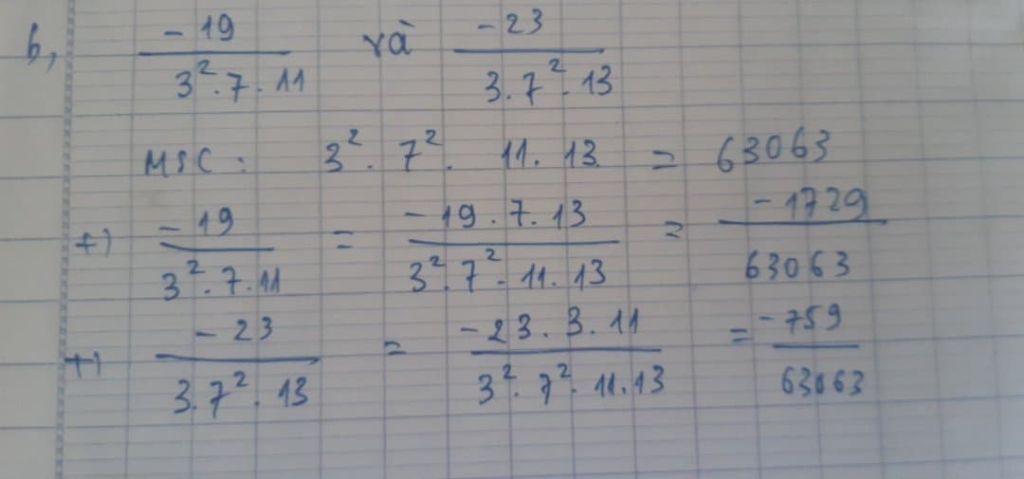 b, -19/(3².7.11) và -23/(3.7².13)
MSC: 3².7².11.13 = 63063
+) -19/(3².7.11) = -19.7.13/(3².7².11.13) = -1729/63063
+) -23/(3.7².13) = -23.3.11/(3².7².11.13) = -759/63063